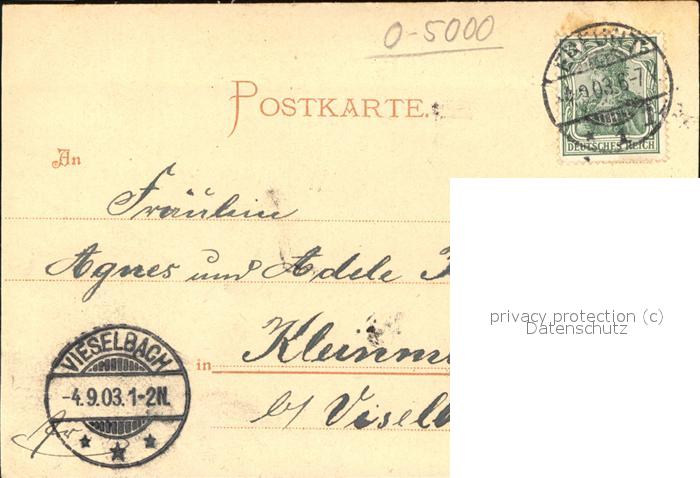 0-5000
4.9.03.6-7
DEUTSCHES REICH
POSTKARTE.
An
Fräulein
Agnes und Adele
privacy protection (c)
Datenschutz
VIESELBACH
-4.9.03.1-2N.
in
Kleinm
b/ Viselb